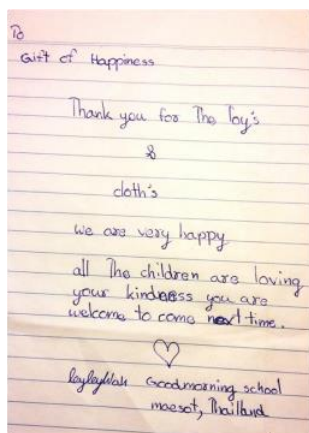 To
Gift of Happiness
Thank you for The Toy's
&
cloth's
we are very happy
all The children are loving
your kindness you are
welcome to come next time.
Goodmorning school
maesot, Thailland